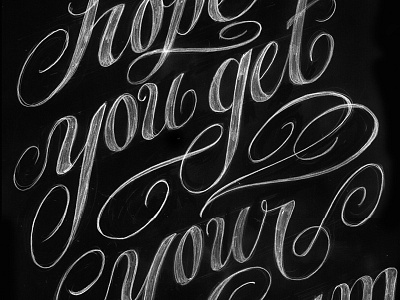 hope
you get
your